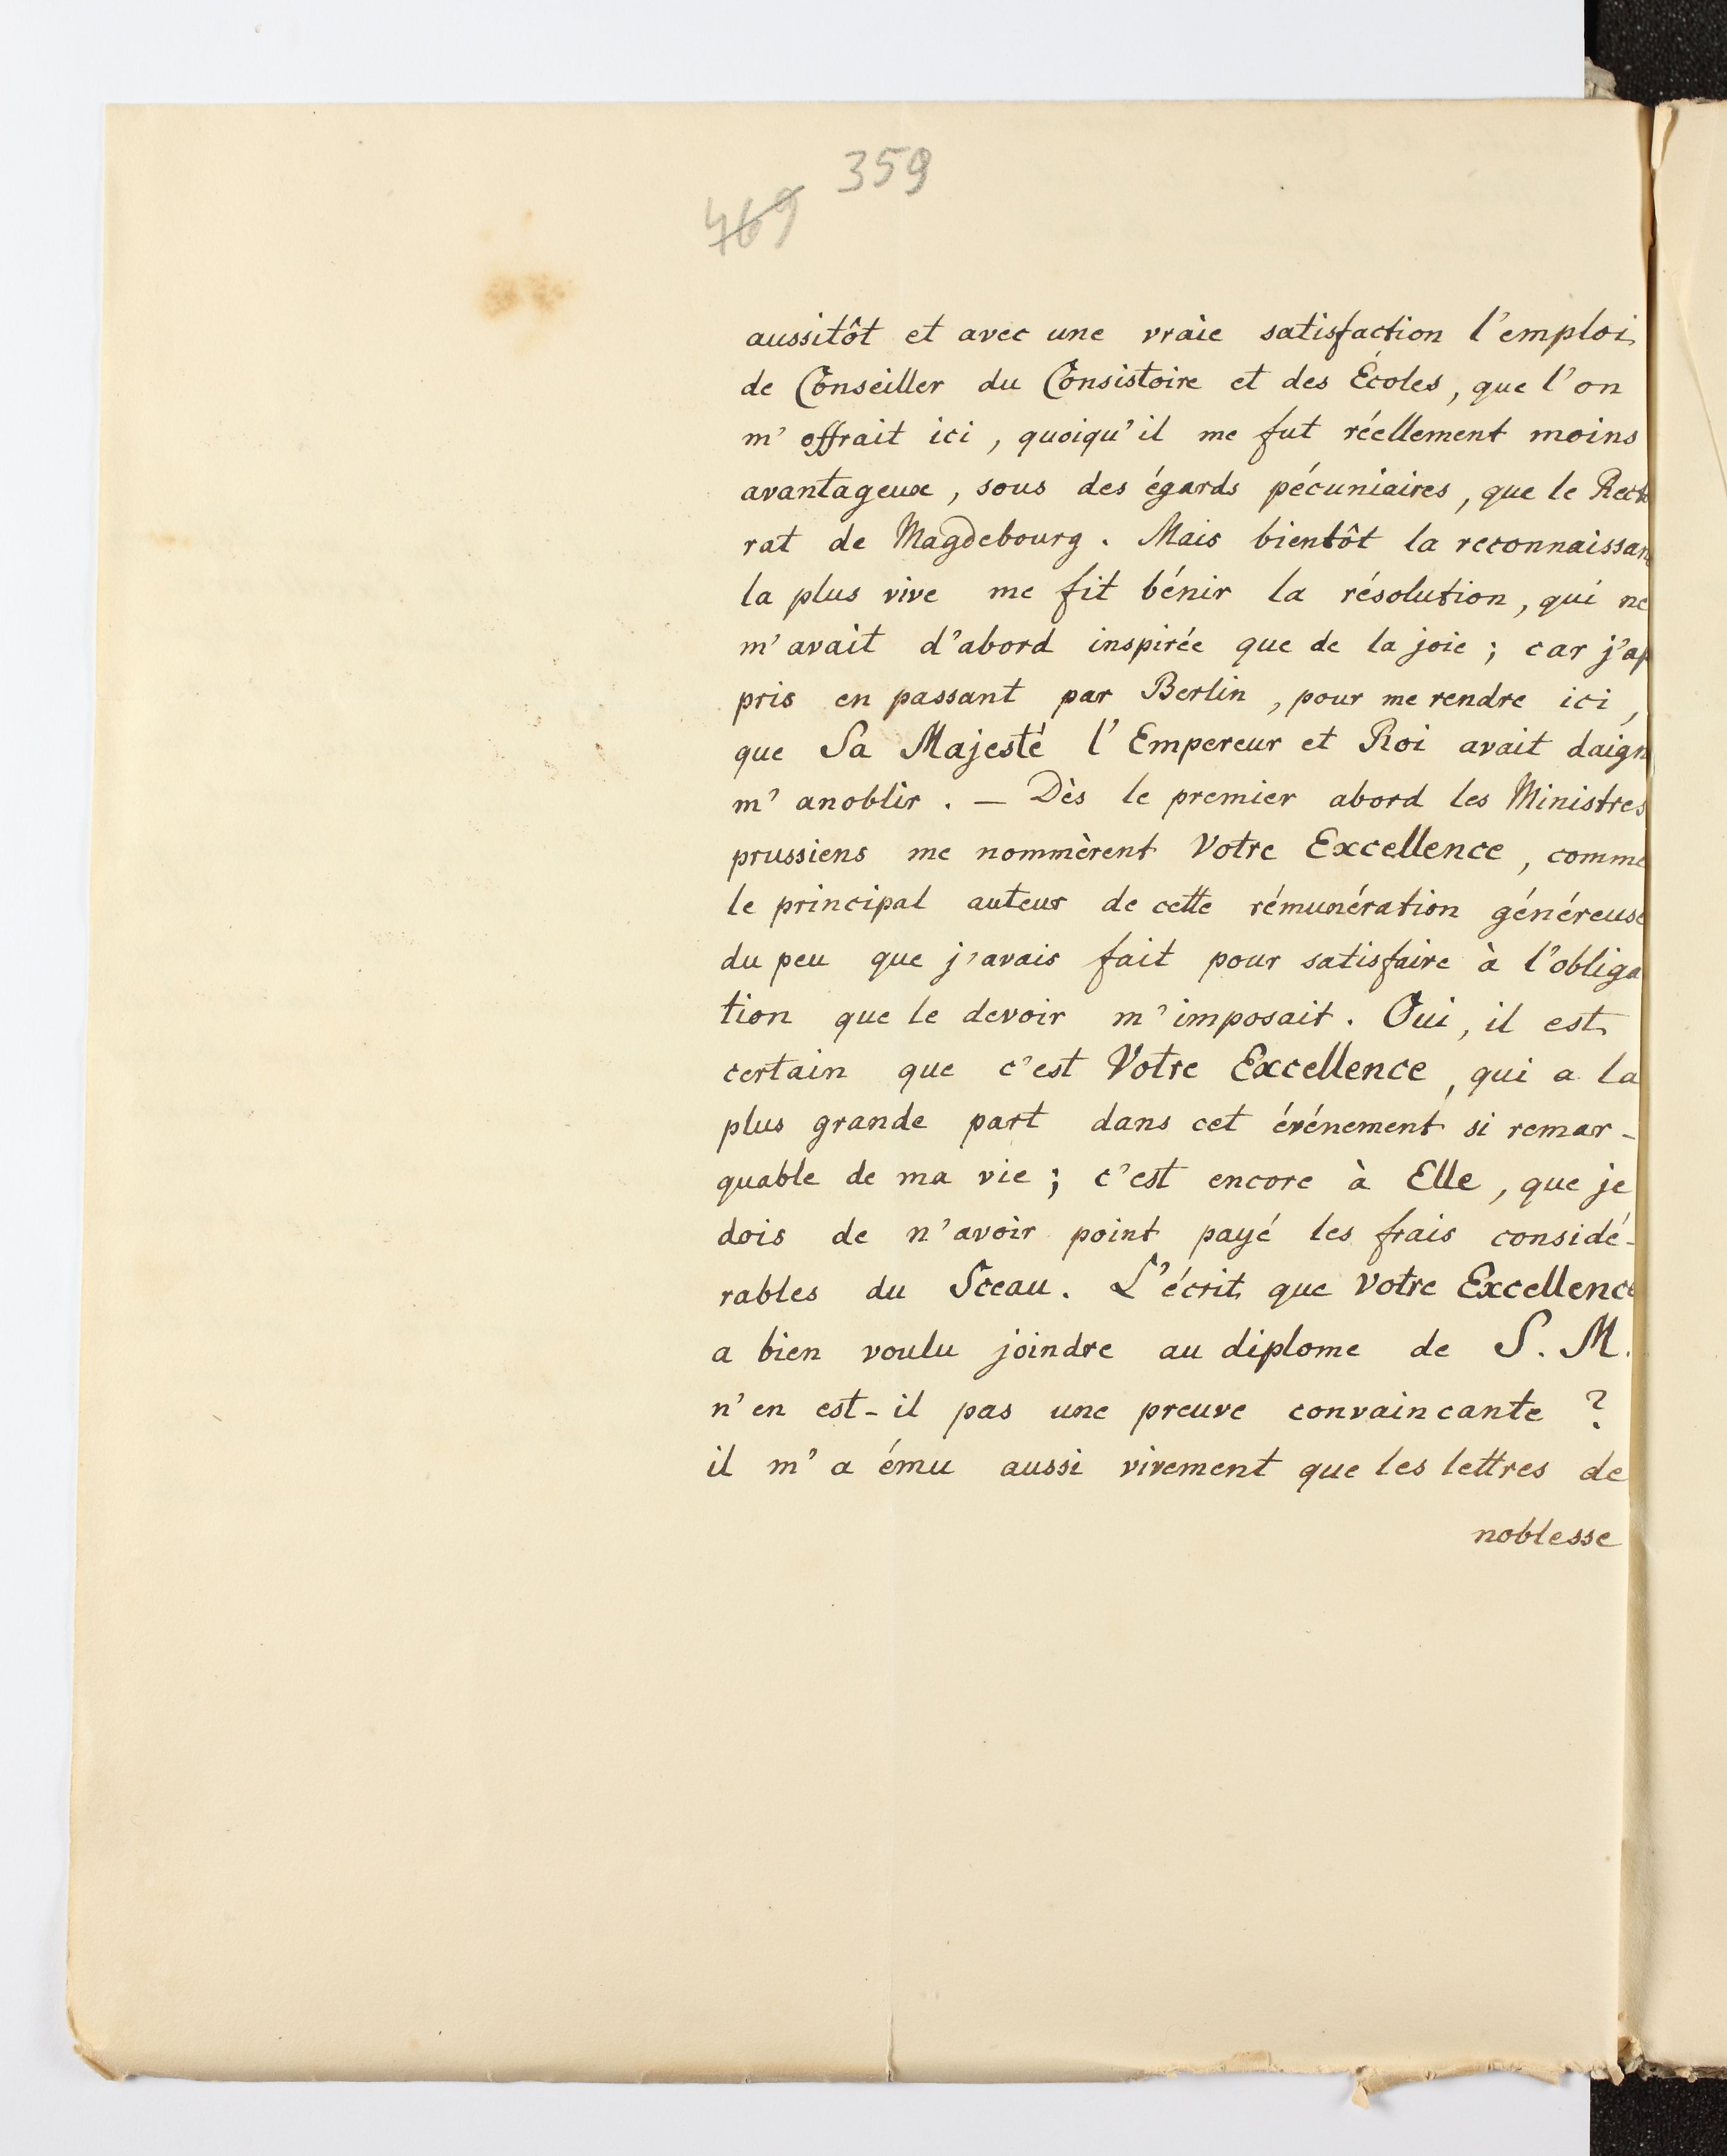 359
469
aussitôt et avec une vraie satisfaction l'emploi
de Conseiller du Consistoire et des Écoles, que l'on
m'offrait ici, quoiqu'il me fut réellement moins
avantageux, sous des égards pécuniaires, que le Recto
rat de Magdebourg. Mais bientôt la reconnaissan
la plus vive me fit bénir la résolution, qui ne
m'avait d'abord inspirée que de la joie; car j'ap
pris en passant par Berlin, pour me rendre ici,
que Sa Majesté l'Empereur et Roi avait daign
m'anoblir. — Dès le premier abord les Ministres
prussiens me nommèrent Votre Excellence, comme
le principal auteur de cette rémunération généreuse
du peu que j'avais fait pour satisfaire à l'obliga
tion que le devoir m'imposait. Oui, il est
certain que c'est Votre Excellence, qui a la
plus grande part dans cet événement si remar-
quable de ma vie; c'est encore à Elle, que je
dois de n'avoir point payé les frais considé-
rables du Sceau. L'écrit que Votre Excellence
a bien voulu joindre au diplome de S. M.
n'en est-il pas une preuve convaincante ?
il m'a ému aussi vivement que les lettres de
noblesse